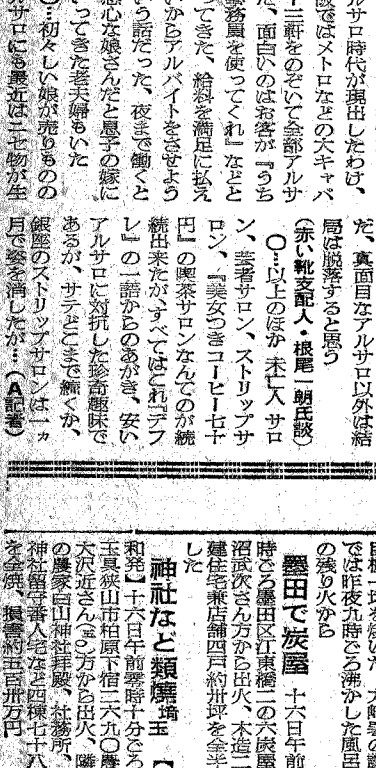 ルサロ時代が現出したわけ、
阪ではメトロなどの大キャバ
十三軒をのぞいて全部アルサ
だ、面白いのはお客が『うち
事務員を使ってくれ』などと
ってきた、給料を満足に払え
いからアルバイトをさせよう
いう話だった、夜まで働くと
心な娘さんだと息子の嫁に
いってきた老夫婦もいた
〇…初々しい娘が売りものの
ルサロにも最近はニセ物が生
だ、真面目なアルサロ以外は結
局は脱落すると思う
(赤い靴支配人・根尾一朝氏談)
〇…以上のほか 未亡人 サロ
ン、芸者サロン、ストリップサ
ロン、『美女つきコーヒー七十
円』の喫茶サロンなんてのが続
続出来たが、すべてはこれ『デフ
レ』の一語からのあがき、安い
アルサロに対抗した珍奇趣味で
あるが、サテどこまで続くか、
銀座のストリップサロンは一ヵ
月で姿を消したが…(A記者)
では昨夜九時ごろ沸かした風呂
の残り火から
墨田で炭屋 十六日午前
時ごろ墨田区江東橋二の六炭屋
沼武次さん方から出火、木造二
建住宅兼店舗四戸約卅坪を全半
した
神社など類焼 埼玉
和発】十六日午前零時十分ごろ
玉県狭山市柏原下宿二六九〇農
大沢近さん方から出火、隣
の農家白山神社拝殿、社務所、
神社留守番人宅など四棟七十八
を全焼、損害約五百卅万円